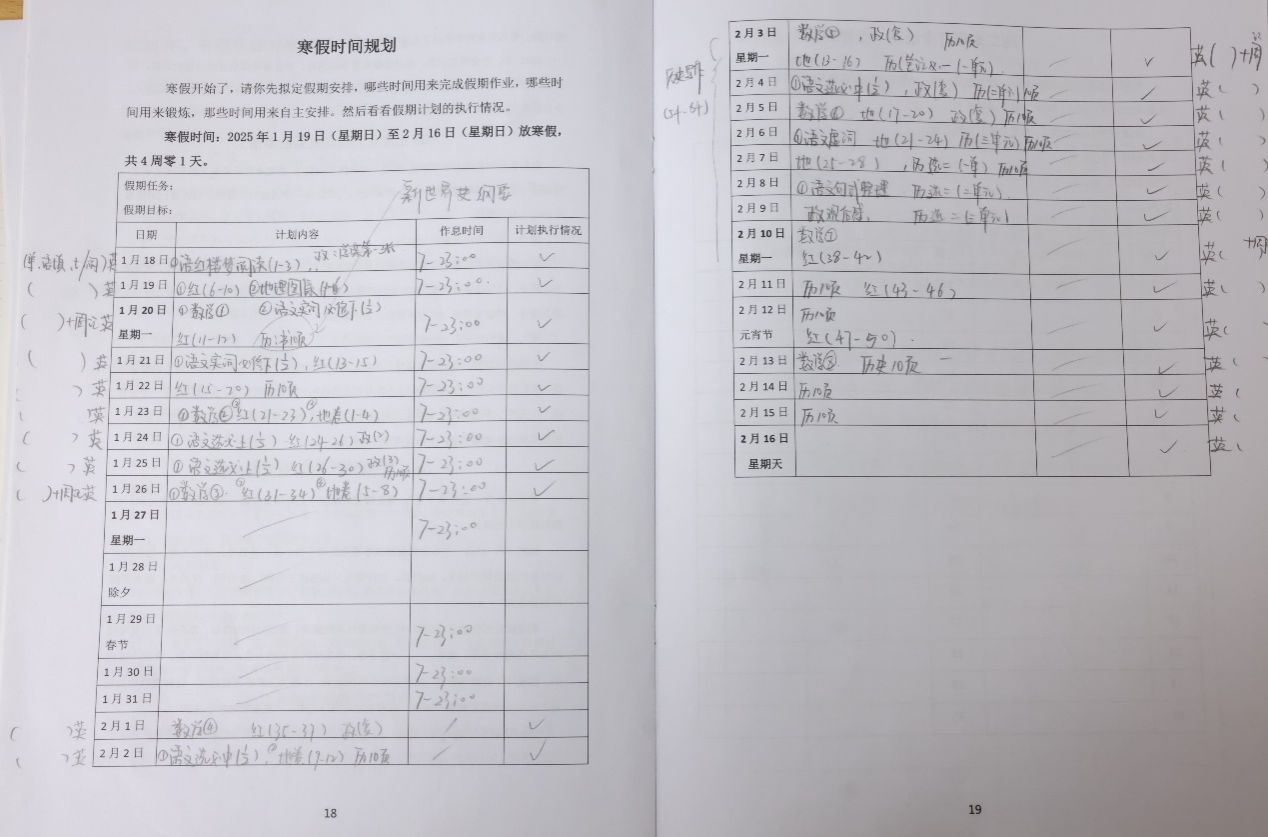 寒假时间规划
寒假开始了，请你先拟定假期安排，哪些时间用来完成假期作业，哪些时
间用来锻炼，那些时间用来自主安排。然后看看假期计划的执行情况。
寒假时间：2025年1月19日（星期日）至2月16日（星期日）放寒假，
共4周零1天。
假期任务：
假期目标：
日期 计划内容 作息时间 计划执行情况
英 1月18日 ①语红楼梦阅读(1-3) 7-23:00 ✓
( )英 1月19日 ①红(6-10) ② 7-23:00 ✓
( )+周记英 1月20日 星期一 ①数学① ②语文实词必修下(½) 红(11-12) 7-23:00 ✓
( )英 1月21日 ①语文实词必修下(½), 红(13-15) 7-23:00 ✓
)英 1月22日 红(15-20) 历10页 7-23:00 ✓
英 1月23日 ①数学② ②红(21-23) ③地卷(1-4) 7-23:00 ✓
( )英 1月24日 ①语文选必上(½) 红(24-26) 政(2) 7-23:00 ✓
)英 1月25日 ①语文选必上(½) 红(26-30) 政(3) 历10页 7-23:00 ✓
( )+周记英 1月26日 ①数学③ 红(31-34) 地卷(5-8) 7-23:00 ✓
1月27日 星期一 7-23:00
1月28日 除夕
1月29日 春节 7-23:00
1月30日 7-23:00
1月31日 7-23:00
( )英 2月1日 数学④ 红(35-37) 政(卷) ✓
( )英 2月2日 ①语文选必中(½), 地卷(9-12) 历10页 ✓
18
2月3日 星期一 数学⑤, 政(卷) 历10页 地(13-16) ✓ 英( )+周
2月4日 ①语文选必中(½), 政(卷) ✓ 英( )
2月5日 数学⑥ 地(17-20) 政(卷) 历10页 ✓ 英(
2月6日 ①语文虚词 地(21-24) 历(三单元) 历10页 ✓ 英( )
2月7日 地(25-28), 历选二(一单) 历10页 ✓ 英( )
2月8日 ①语文句式整理 历选二(二单元) ✓ 英( )
2月9日 历选二(三单元) ✓ 英( )
2月10日 星期一 数学⑦ 红(38-42) ✓ 英( +周
2月11日 历10页 红(43-46) ✓ 英( )
2月12日 元宵节 历10页 红(47-50) ✓ 英(
2月13日 数学⑧ 历史10页 ✓ 英(
2月14日 历10页 ✓ 英(
2月15日 历10页 ✓ 英(
2月16日 星期天 ✓ 英(
19